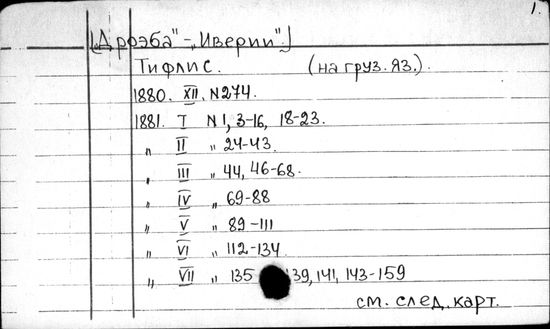 1.
[„Дроэба"-„Иверии".]
Тифлис. (на груз. яз.).
1880. XII. N274.
1881. I N1, 3-16, 18-23.
„ II „ 24-43.
„ III „ 44, 46-68.
„ IV „ 69-88
„ V „ 89-111
„ VI „ 112-134
„ VII „ 135- 139, 141, 143-159
см. след. карт.